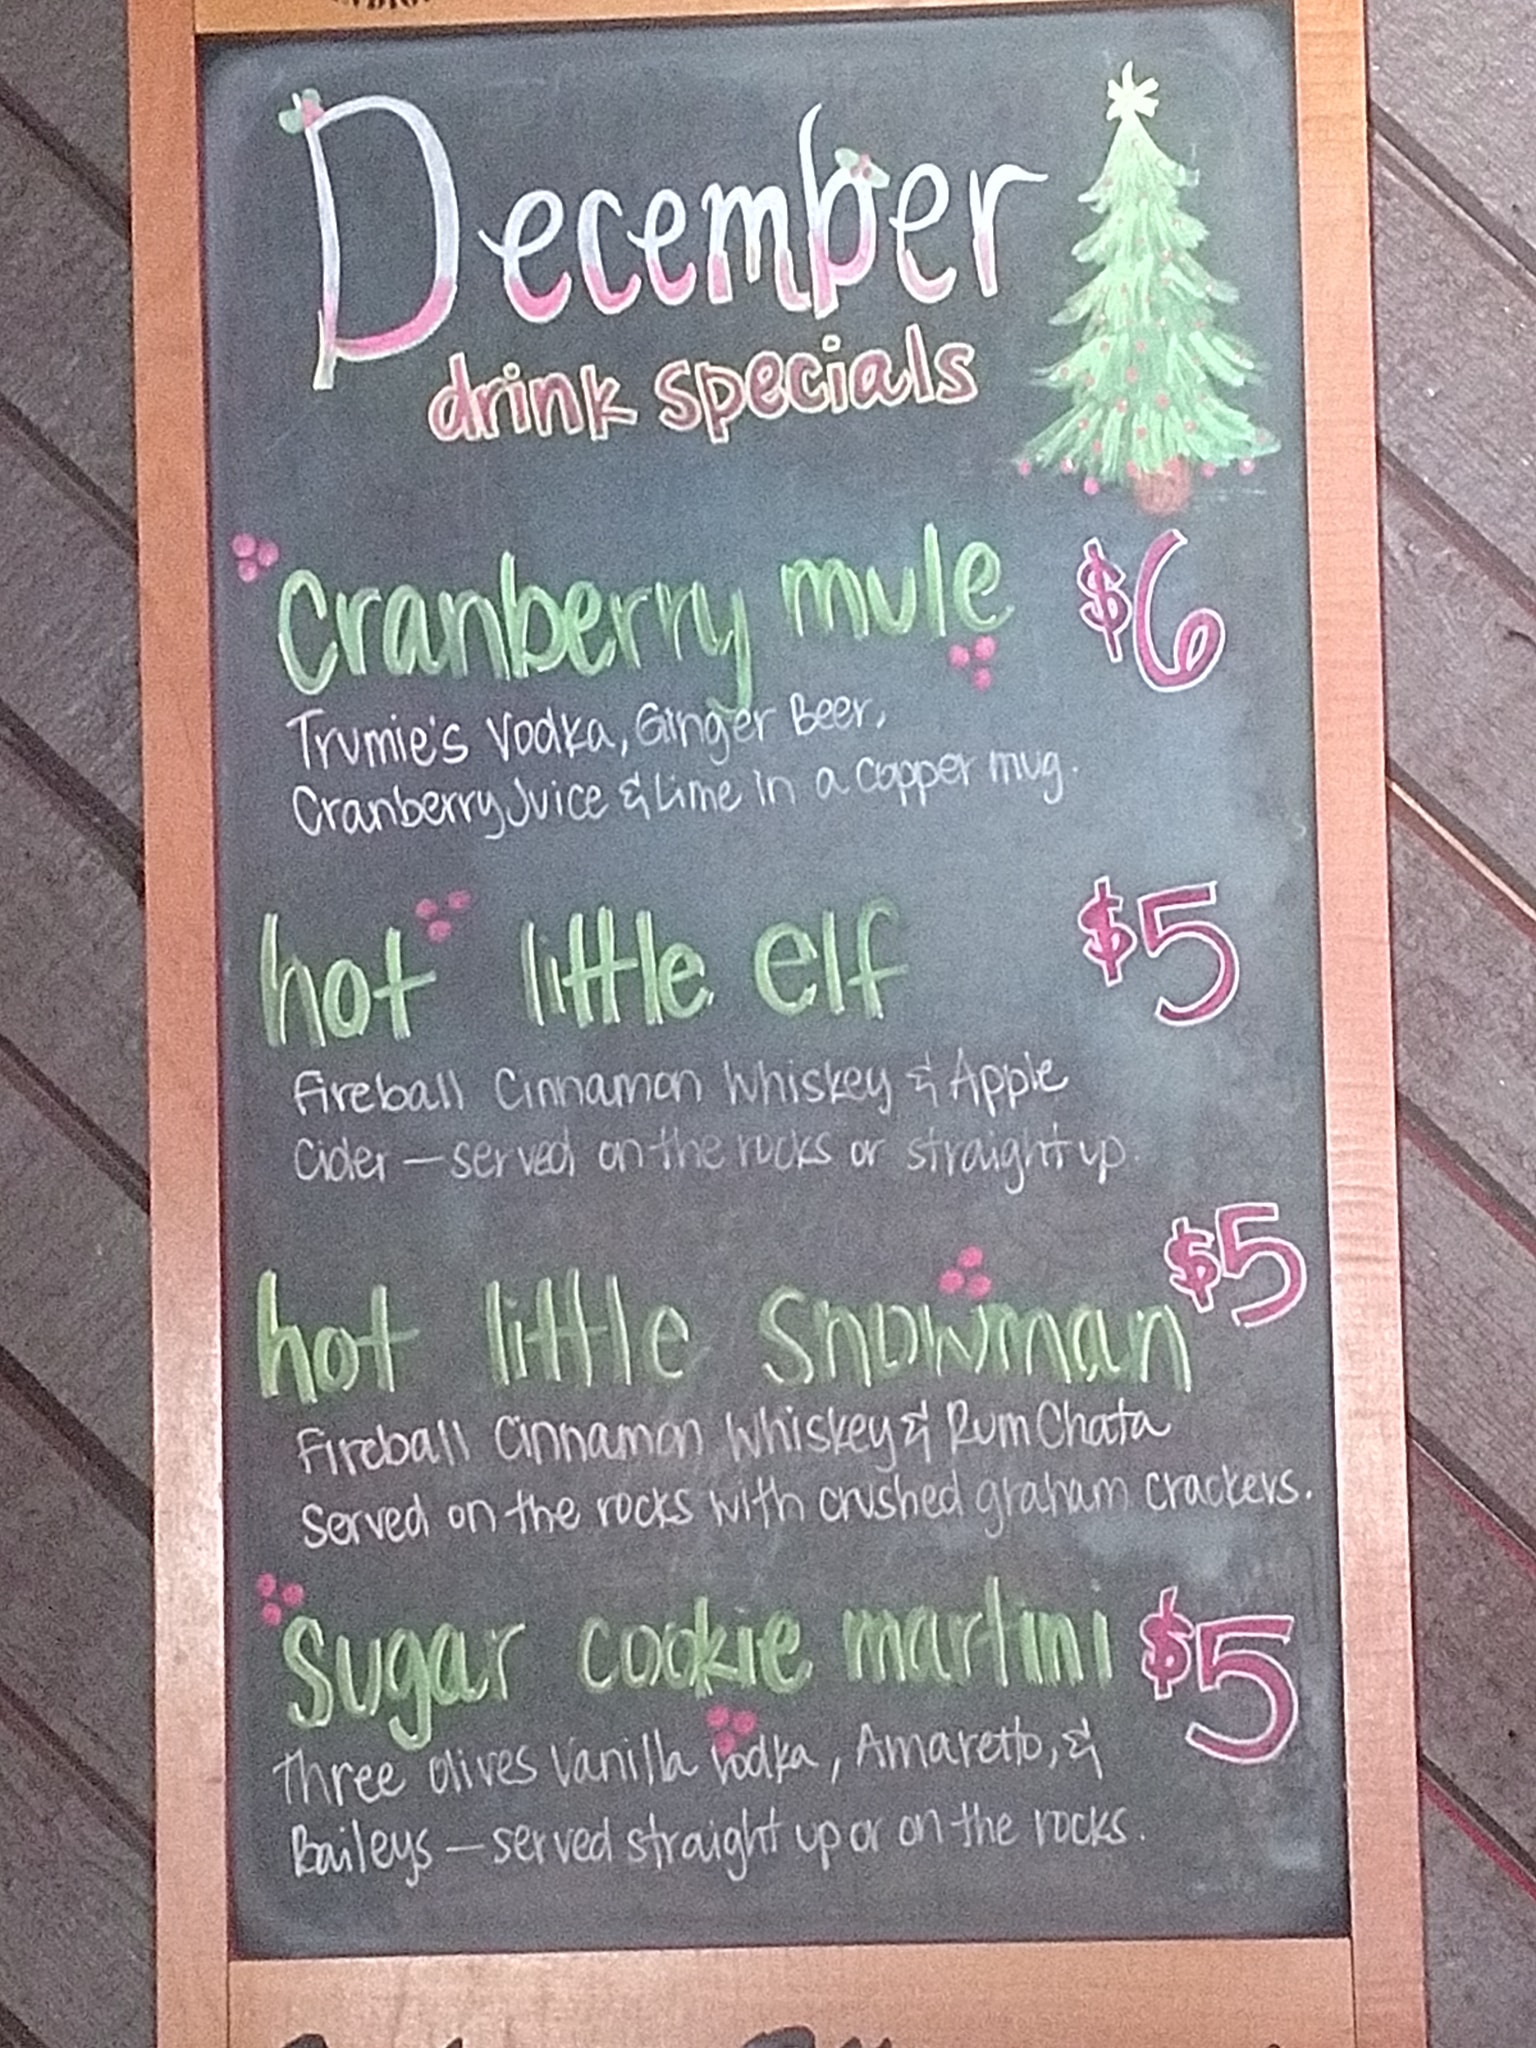 December
drink specials
Cranberry mule $6
Trumie's Vodka, Ginger Beer,
Cranberry Juice & Lime in a copper mug.
hot little elf $5
Fireball Cinnamon Whiskey & Apple
Cider — served on the rocks or straight up.
hot little snowman $5
Fireball Cinnamon Whiskey & RumChata
Served on the rocks with crushed graham crackers.
Sugar cookie martini $5
Three Olives Vanilla Vodka, Amaretto, &
Baileys — served straight up or on the rocks.